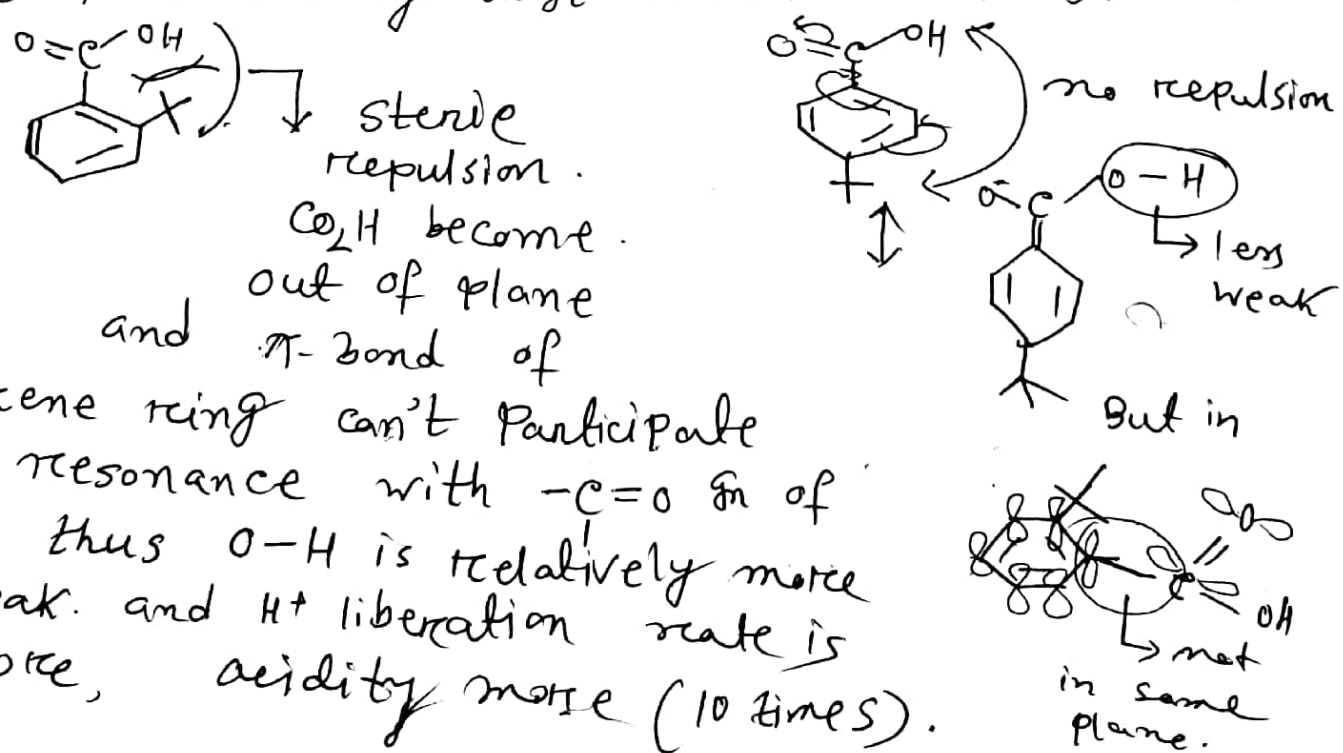 O=C OH
steric
repulsion.
CO2H become.
out of plane
and π-bond of
cene ring can't Participate
resonance with -C=O gn of
thus O-H is relatively more
ak. and H+ liberation rate is
ore, acidity more (10 times).
O=C OH
no repulsion
O- C O-H
less
weak
But in
O
C
OH
not
in same
plane.